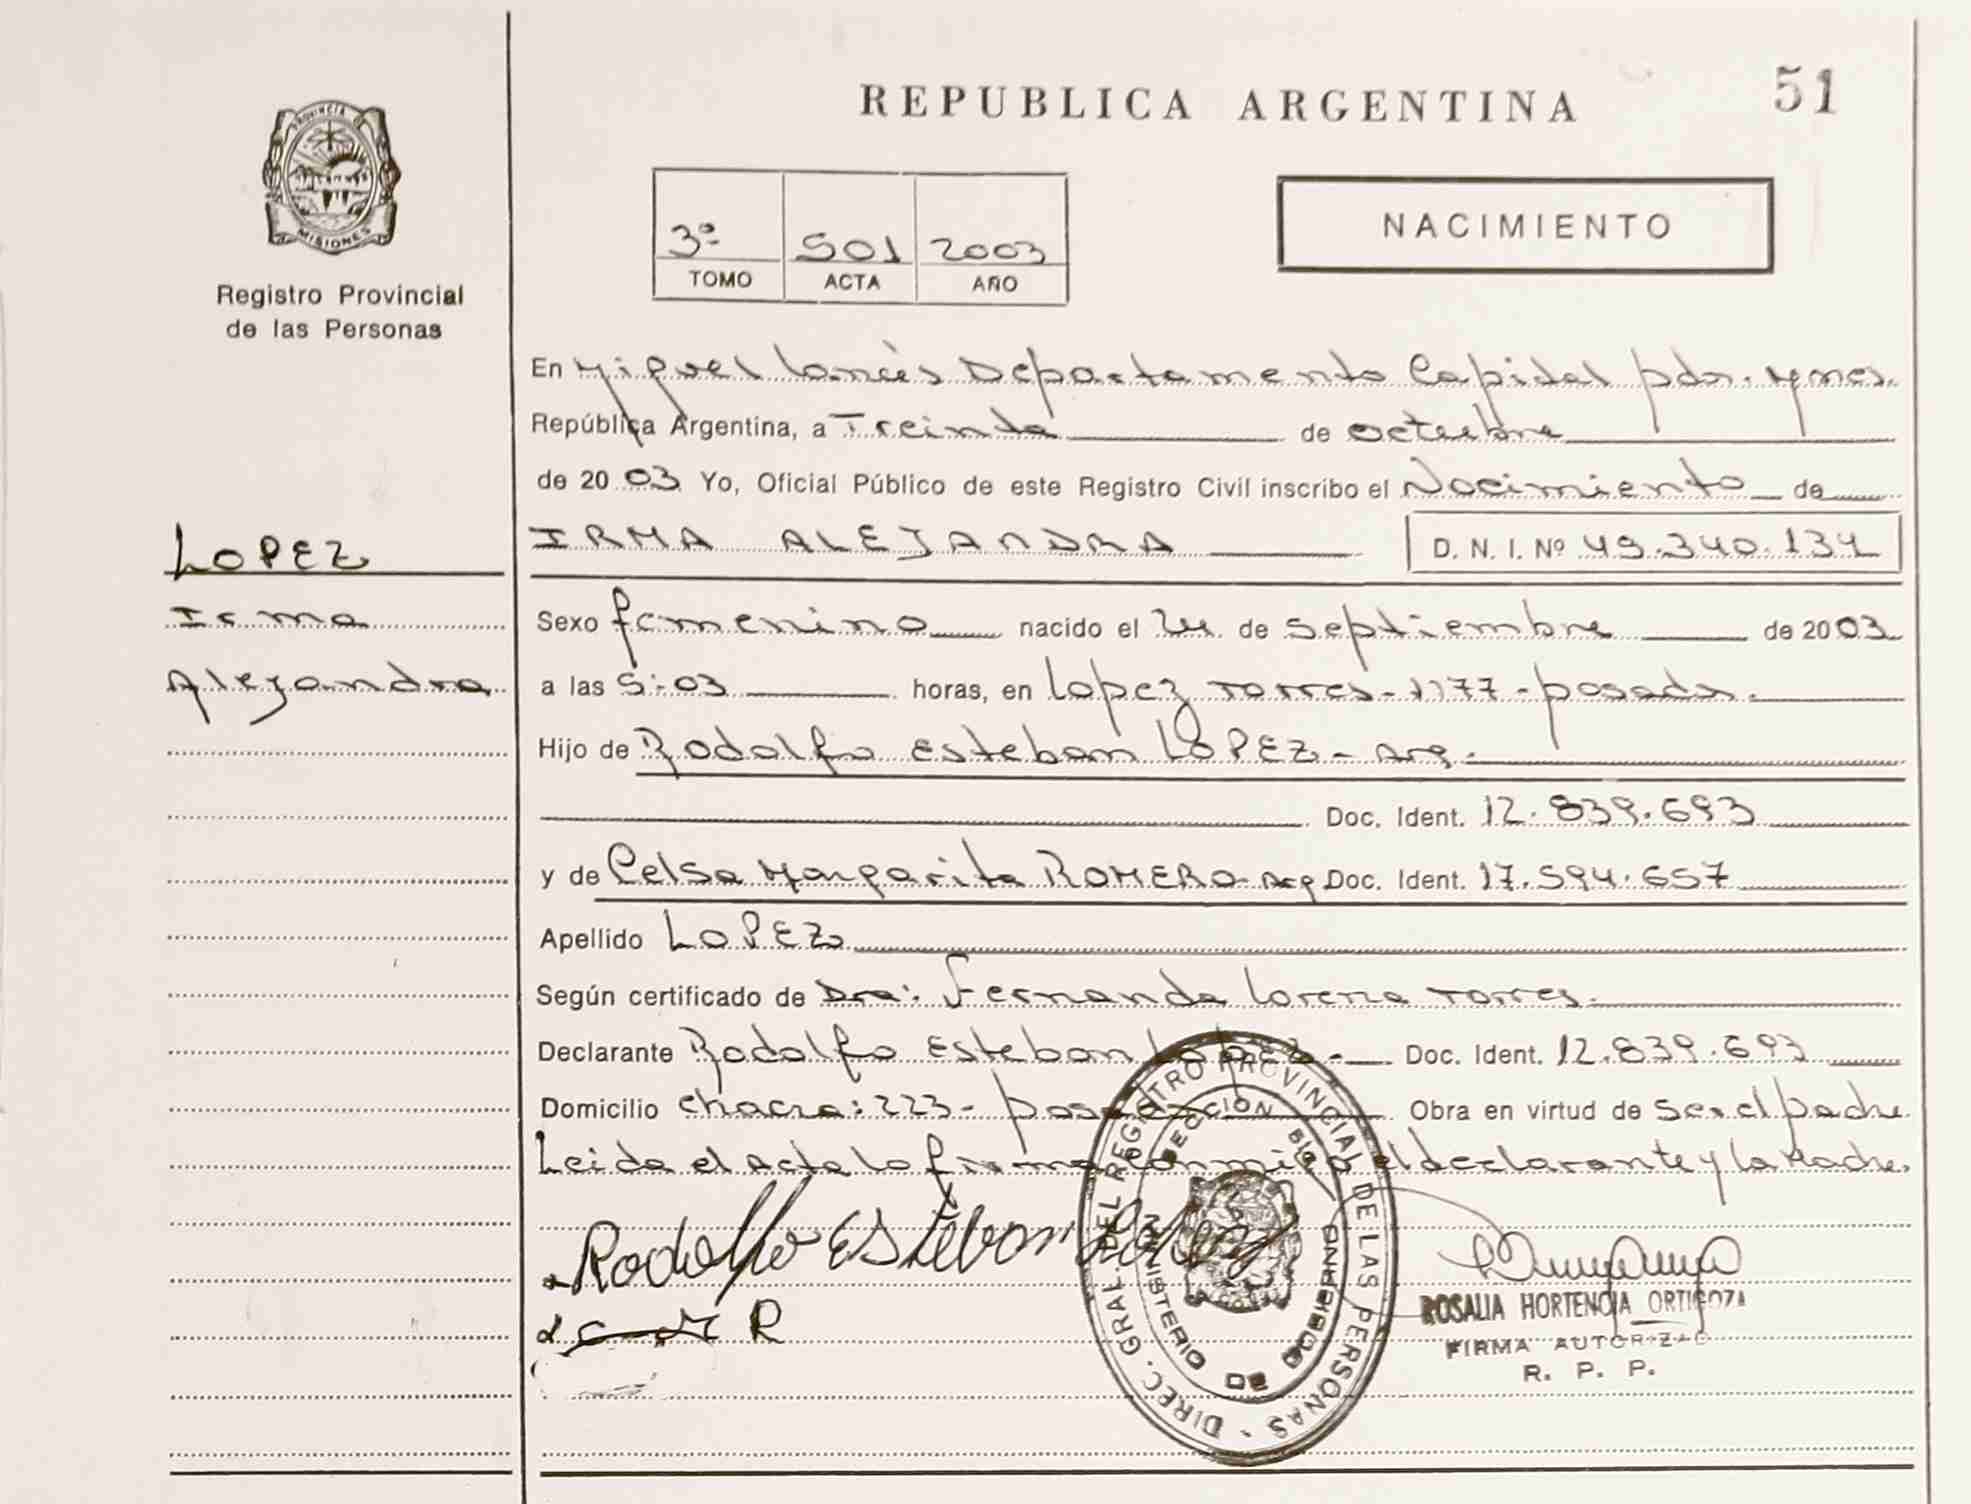 REPUBLICA ARGENTINA
51
PROVINCIA DE
MISIONES
Registro Provincial
de las Personas
3º 501 2003
TOMO ACTA AÑO
NACIMIENTO
En Miguel Lanús Departamento Capital pdas. Mnes.
República Argentina, a Treinta de octubre
de 2003 Yo, Oficial Público de este Registro Civil inscribo el Nacimiento de
IRMA ALEJANDRA D. N. I. Nº 49.340.134
LOPEZ
Irma
Alejandra
Sexo femenino nacido el 24 de septiembre de 2003
a las 5:03 horas, en Lopez Torres-1177-posadas.
Hijo de Rodolfo Esteban LOPEZ - Arg.
Doc. Ident. 12.839.693
y de Celsa Margarita ROMERO-Arg Doc. Ident. 17.594.657
Apellido LOPEZ
Según certificado de Dra: Fernanda Lorena Torres.
Declarante Rodolfo Esteban Lopez - Doc. Ident. 12.839.693
Domicilio chacra: 223 - posadas Obra en virtud de ser el padre
Leida el acta la firma conmigo el declarante y la Madre.
Rodolfo Esteban Lopez
R
DIREC. GRAL. DEL REGISTRO PROVINCIAL DE LAS PERSONAS
MINISTERIO DE GOBIERNO
ROSALIA HORTENCIA ORTIGOZA
FIRMA AUTORIZAD
R. P. P.